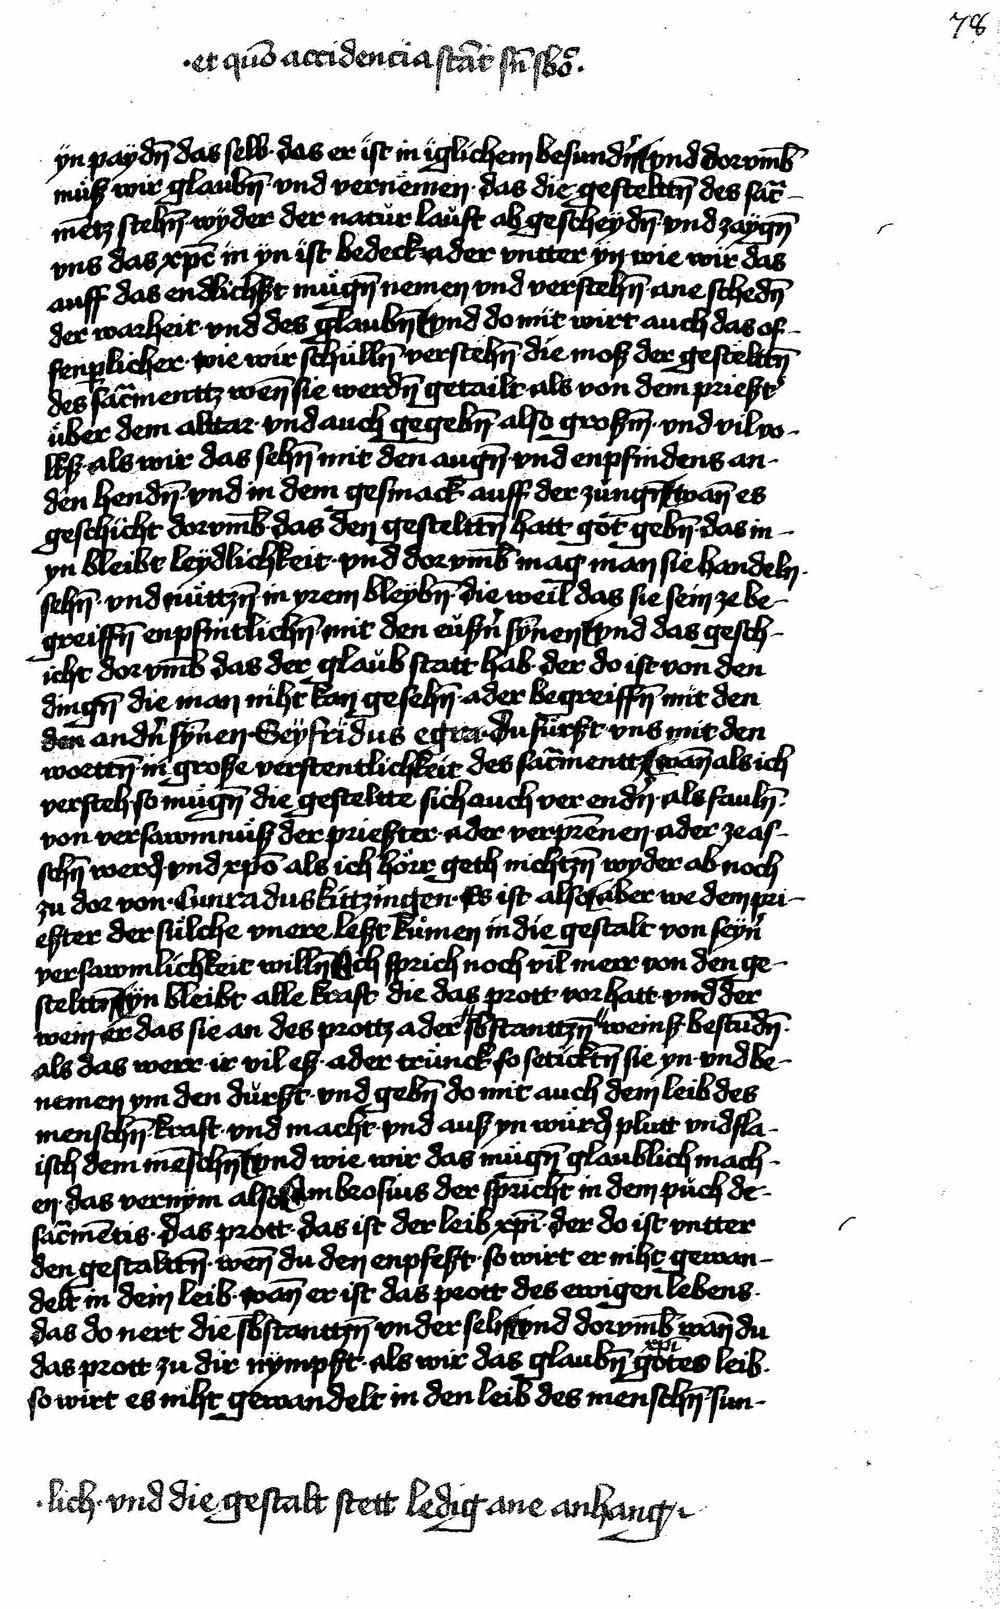 78
·et quō accidencia stāt sn̄ sbō·
ÿn paÿdn̄ das selb· das er ist in iglichem besundn̄ vnd dorvm̄b
muß wir glaubn̄· vnd vernemen· das die gesteltn̄ des sac̄-
mētz stehn̄ wyder der natur lauft ab gescheydn̄ vnd zaygn̄
vns das xpc̄ in yn ist bedeck ader vntter yn wie wir das
auff das endlichst mugn̄ nemen vnd verstehn̄ ane schedn̄
der warheit· vnd des glaubn̄ vnd do mit wirt auch das of-
fenplicher· wie wir schulln̄ verstehn̄ die moß der gestelttn̄
des sac̄menttz wen̄ sie werdn̄ getailt als von dem priest
über dem alttar· vnd auch gegebn̄ also großn̄· vnd vil vo-
llß· als wir das sehn̄ mit den augn̄· vnd enpfindens an·
den hendn̄· vnd in dem gesmack auff der zungn̄ wan̄ es
geschicht dorvm̄b das den gestelttn̄ hatt got gebn̄· das in-
yn bleibt leydlichkeit· vnd dorvm̄b mag man sie handeln·
sehn̄· vnd nüttzn̄· in yrem bleybn̄· die weil das sie sein ze be-
greiffn̄ enpfintlichn̄· mit den eußn̄ syn̄en vnd das gesch-
icht dorvm̄b das der glaub statt hab· der do ist von den
dingn̄ die man niht kan gesehn̄· ader begreiffn̄ mit den
den andn̄ syn̄en· Seyfridus egra· du fürst vns mit den
wortten̄ in große verstentlichkeit des sac̄menttz wan̄ als ich
versteh· so mugn̄ die gestelte sich auch ver endn̄· als fauln̄·
von versawmnuß der priester· ader verpren̄en· ader ze as-
schn̄ werd· vnd xpō als ich hör geth nichtzn̄ wyder ab noch
zu dor von· Cunradus kittzingen· Es ist also aber we dem pri-
ester der sulche vnere lest kumen in die gestalt von seyn̄
versawmlichkeit willn̄ Ich sprich noch vil merr von den ge-
stelttn̄ yn bleibt alle kraft die das prott vor hatt· vnd der
wein er das sie an des prottz ader "sbstanttzn̄" weinß bestūdn̄·
als das werr· ir vil eß· ader trunck· so seticktn̄ sie yn· vnd be-
nemen ym den durst· vnd gebn̄ do mit auch dem leib des
menschn̄ kraft· vnd macht· vnd auß yn wurd plutt vnd fla-
isch dem mēschn̄ vnd wie wir das mugn̄ glaublich mach-
en· das vernym also Ambrosius der spricht in dem puch de-
sac̄mētis· das prott· das ist der leib xpī· der do ist vntter
den gestalttn̄· wen̄ du den enpfest· so wirt er niht gewan-
delt in dein leib· wan̄ er ist das prott des ewigen lebens·
das do nert die sbstanttzn̄ vnder seln vnd dorvm̄b wan̄ du
das prott zu dir nympst· als wir das glaubn̄ gotes xpī leib·
so wirt es niht gewandelt in den leib des menschn̄· sun-
·lich· vnd die gestalt stett ledig ane anhang·